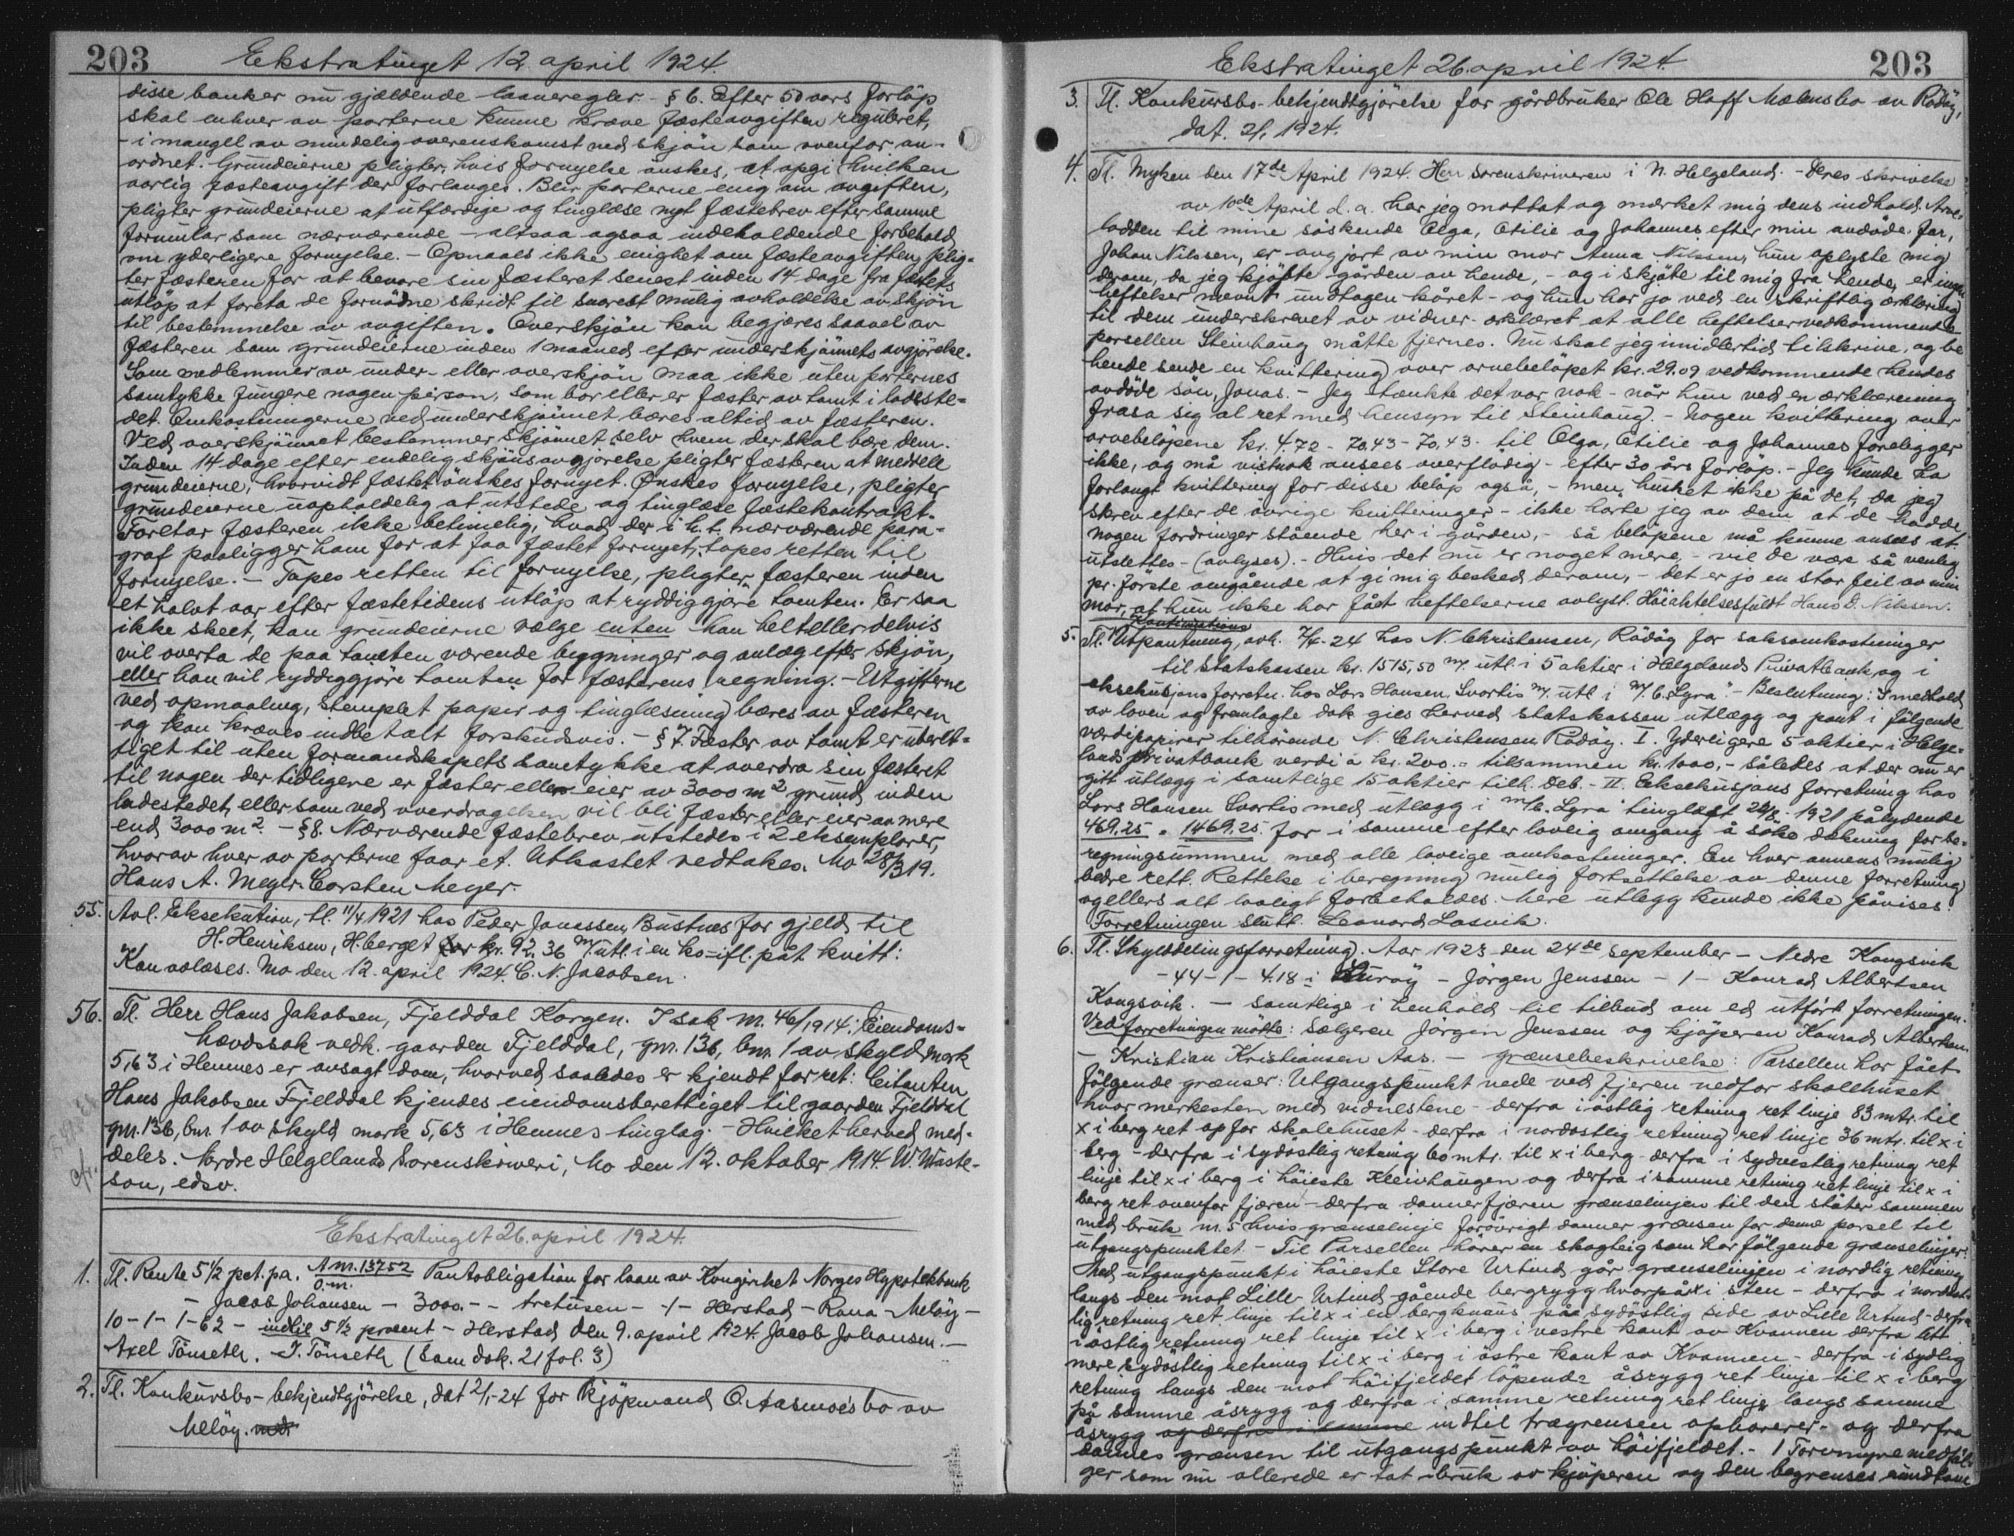 203 Ekstratinget 12. april 1924.
disse banker nu gjældende laaneregler. - § 6. Efter 50 aars forløp
skal enhver av parterne kunne kræve fæsteavgiften reguleret,
- i mangel av mindelig overenskomst ved skjøn som ovenfor an-
ordnet. Grundeierne pligter, hvis fornyelse ønskes, at opgi hvilken
aarlig fæsteavgift der forlanges. Blir parterne enig om avgiften,
pligter grundeierne at utfærdige og tinglæse nyt fæstebrev efter samme
formular som nærværende - altsaa ogsaa indeholdende forbehold
om yderligere fornyelse. - Opnaaes ikke enighet om fæsteavgiften, plig-
ter fæsteren for at bevare sin fæsteret senest inden 14 dage fra fæstets
utløp at foreta de fornødne skridt til snarest mulig avholdelse av skjøn
til bestemmelse av avgiften. Overskjøn kan begjeres saavel av
fæsteren som grundeierne inden 1 maaned efter underskjønnets avgjørelse.
Som medlemmer av under- eller overskjøn maa ikke uten parternes
samtykke fungere nogen person, som bor eller er fæster av tomt i ladeste-
det. Omkostningerne ved underskjønnet bæres altid av fæsteren.
Ved overskjønnet bestemmer skjønnet selv hvem der skal bære dem.
Inden 14 dage efter endelig skjønsavgjørelse pligter fæsteren at meddele
grundeierne, hvorvidt fæstet ønskes fornyet. Ønskes fornyelse, pligter
grundeierne uopholdelig at utstede og tinglæse fæstekontrakt.
Foretar fæsteren ikke betimelig, hvad der i h.t. nærværende para-
graf paaligger ham for at faa fæstet fornyet, tapes retten til
fornyelse. - Tapes retten til fornyelse, pligter fæsteren inden
et halvt aar efter fæstetidens utløp at ryddiggjøre tomten. Er saa
ikke skeet, kan grundeierne vælge enten han helt eller delvis
vil overta de paa tomten værende bygninger og anlæg efter skjøn,
eller han vil ryddiggjøre tomten for fæsterens regning. - Utgifterne
ved opmaaling, stemplet papir og tinglæsning bæres av fæsteren
og kan kræves indbetalt forskudsvis. - § 7. Fæster av tomt er uberet-
tiget til uten formandskapets samtykke at overdra sin fæsteret
til nogen der tidligere er fæster eller eier av 3000 m² grund inden
ladestedet, eller som ved overdragelsen vil bli fæster eller eier av mere
end 3000 m². - § 8. Nærværende fæstebrev utstedes i 2 eksemplarer,
hvorav hver av parterne faar et. Utkastet vedtakes. Mo 28/3 19.
Hans A. Meyer. Carsten Meyer.
55. Avl. Eksekution, tl. 11/4 1921 hos Peder Jonassen, Bustnes for gjeld til
H. Henriksen, H.berget for kr. 92,36 m. utl. i en ko - ifl. påt. kvitt:
Kan avlæses. Mo den 12. april 1924. C. N. Jacobsen.
56. Tl. Herr Hans Jakobsen, Fjelddal Korgen. I sak nr. 46/1914: Eiendoms-
hævdssak vedk. gaarden Fjelddal, gnr. 136, bnr. 1 av skyld mark
5,63 i Hemnes er avsagt dom, hvorved saaledes er kjendt for ret: Citanten
Hans Jakobsen Fjelddal kjendes eiendomsberettiget til gaarden Fjelddal
gnr. 136, bnr. 1 av skyld mark 5,63 i Hemnes tinglag. - Hvilket herved med-
deles. Nordre Helgeland Sorenskriveri, Mo den 12. oktober 1914. W. Waste-
son, edsv.
Ekstratinget 26. april 1924.
1. Tl. Rente 5½ pct. pa. A nr. 13752 Pantobligation for laan av Kongeriket Norges Hypotekbank
O. m.
- Jacob Johansen - 3000.- - tretusen - 1 - Herstad - Rana - Meløy -
10 - 1 - 1-62 - indtil 5½ procent - Herstad den 9. april 1924. Jacob Johansen. -
Axel Tønseth. I. Tønseth (Som dok. 21 fol. 3)
2. Tl. Konkursbo - bekjendtgjørelse, dat 2/1-24 for kjøpmand O. Aasmoes bo av
Meløy.
Ekstratinget 26. april 1924. 203
3. Tl. Konkursbo - bekjendtgjørelse for gårdbruker Ole Hoff Molnes bo av Rødøy,
dat. 2/1 1924.
4. Tl. Myken den 17de April 1924. Herr Sorenskriveren i N. Helgeland. - Deres skrivelse
av 10de April d. a. har jeg mottat og mærket mig dens indhold. Arve-
lodden til mine søskende Olga, Otilie og Johannes efter min avdøde far,
Johan Nilssen, er avgjort av min mor Anna Nilssen, hun oplyste mig
derom, da jeg kjøpte gården av hende, - og i skjøte til mig fra hende, er ingen
heftelser nævnt undtagen kåret - og hun har jo ved en skriftlig erklæring
til dem underskrevet av vidner erklæret at alle heftelser vedkommende
parsellen Steinhaug måtte fjernes. Nu skal jeg imidlertid tilskrive, og be
hende sende en kvittering over arvebeløpet kr. 29.09 vedkommende hendes
avdøde søn, Jonas. - Jeg tænkte det var nok - når hun ved en erklæring
frasa sig al ret med hensyn til Steinhaug. - Nogen kvittering over
arvebeløpene kr. 4.72 - 70.43 - 70.43 - til Olga, Otilie og Johannes foreligger
ikke, og må vistnok ansees overflødig - efter 30 års forløp. - Jeg kunde ha
forlangt kvittering for disse beløp også, - men husket ikke på det, da jeg
skrev efter de øvrige kvitteringer - ikke hørte jeg av dem at de havde
nogen fordringer stående her i gården, - så beløpene må kunne ansees at
utslettes - (avlyses). - Hvis det nu er noget mere, - vil de være så venlig
pr. første omgående at gi mig besked derom, - det er jo en stor feil av min
mor, at hun ikke har fået heftelserne avlyst. Høiaktelsesfuldt Hans D. Nilsen.
Kontinuations
5. Tl. Utpantning, avh. 7/4-24 hos N. Christensen, Rødøy for saksomkostninger
til statskassen kr. 1515,50 m. utl. i 5 aktier i Helgelands Privatbank, og i
eksekusjonsforretn. hos Lars Hansen Svartis m. utl. i M/k "Lyra". - Beslutning: I medhold
av loven og fremlagte dok. gies herved statskassen utlægg og pant i følgende
værdipapirer tilhørende N. Christensen Rødøy. I. Yderligere 5 aktier i Helge-
lands Privatbank verdi à kr. 200.- = tilsammen kr. 1000,- således at der nu er
gitt utlægg i samtlige 15 aktier tilh. Deb. - II. Eksekusjonsforretning hos
Lars Hansen Svartis med utlegg i M/k. "Lyra" tinglæst 20/8 - 1921 pålydende
469.25 = 1469.25. for i samme efter lovlig omgang å søke dekning for be-
regningssummen med alle lovlige omkostninger. En hver annens mulig
bedre rett. Rettelse i beregning mulig fortsettelse av denne forretning
og ellers alt lovligt forbeholdes. Mere utlegg kunde ikke påvises.
Forretningen slutt. Leonard Lasvik.
6. Tl. Skylddelingsforretning. Aar 1923 den 24de september - Nedre Kongsvik
- 44 - 1 - 4.18 i Lurøy - Jørgen Jenssen - 1 - Konrad Albertsen
Kongsvik. - samtlige i henhold til tilbud om ed utført forretningen.
Ved forretningen møtte: Sælgeren Jørgen Jenssen og kjøperen Konrad Albertsen.
- Kristian Kristiansen Aas. - grænsebeskrivelse: Parsellen har fået
følgende grænser: Utgangspunkt nede ved fjæren nedfor skolehuset
hvor merkesten med vidnestene - derfra i østlig retning ret linje 83 mtr. til
x i berg ret op for skolehuset - derfra i nordøstlig retning ret linje 36 mtr. til x i
berg - derfra i sydøstlig retning 60 mtr. til x i berg - derfra i sydvestlig retning ret
linje til x i berg i høieste Kleivhaugen og derfra i samme retning ret linje til x i
berg ret ovenfor fjæren - derfra danner fjæren grænselinjen til den støter sammen
med bruk nr. 5 hvis grænselinje forøvrigt danner grænsen for denne parsel til
utgangspunktet. - Til Parsellen hører en skogteig som har følgende grænselinjer:
Med utgangspunkt i høieste Store Urtind går grænselinjen i nordlig retning
langs den mot Lille Urtind gående bergrygg hvorpå x i sten - derfra i nordøst-
lig retning ret linje til x i en bergknaus paa sydøstlig side av Lille Urtind - derfra
i østlig retning ret linje til x i berg i vestre kant av Kvannen derfra litt
mere sydøstlig retning til x i berg i østre kant av Kvannen - derfra i sydlig
retning langs den mot høifjeldet løpende åsrygg ret linje til x i berg
på samme åsrygg og derfra i samme retning ret linje langs samme
åsrygg og derfra i samme indtil trægrænsen ophører - og derfra
dannes grænsen til utgangspunkt av høifjeldet. - 1 Torvmyre medføl-
ger som nu allerede er tat i bruk av kjøperen og den begrenses rundtom